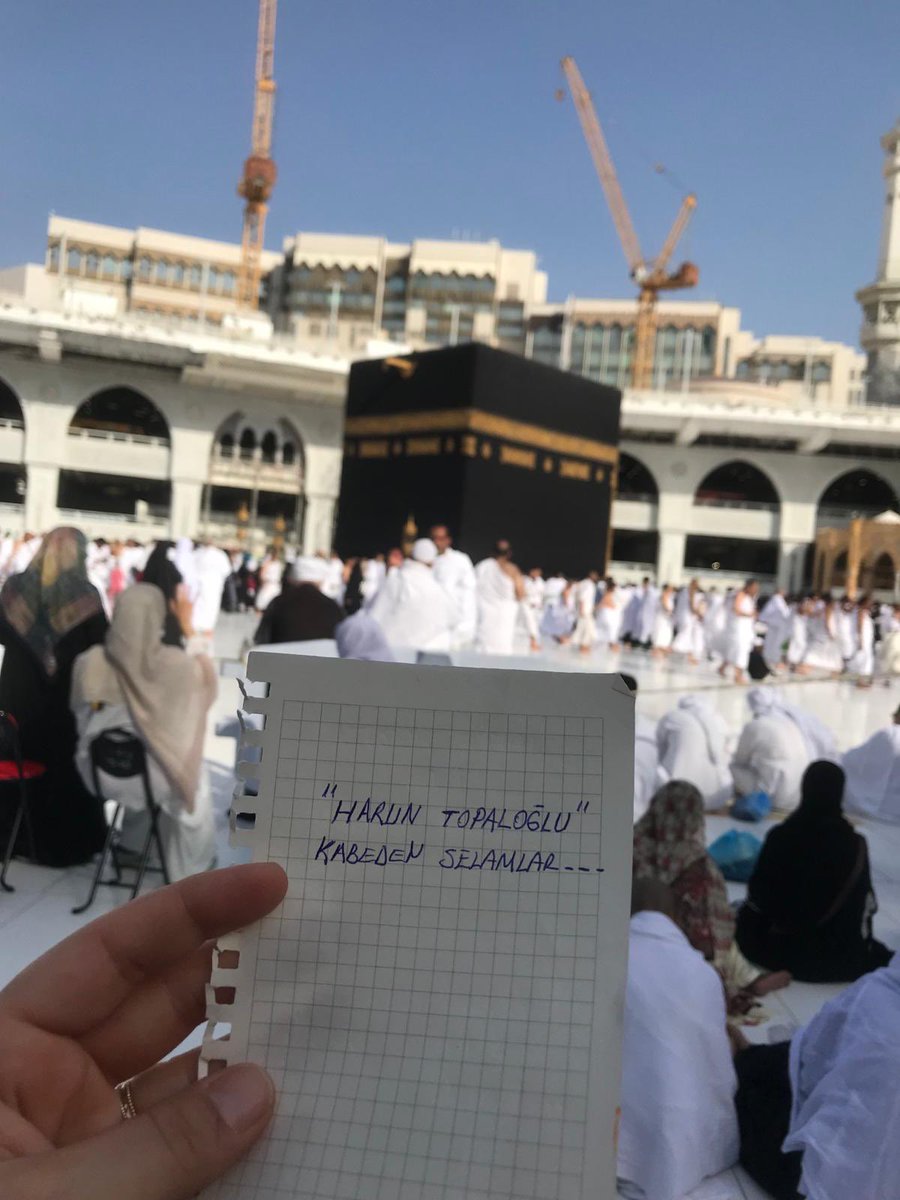 "HARUN TOPALOĞLU"
KABEDEN SELAMLAR---